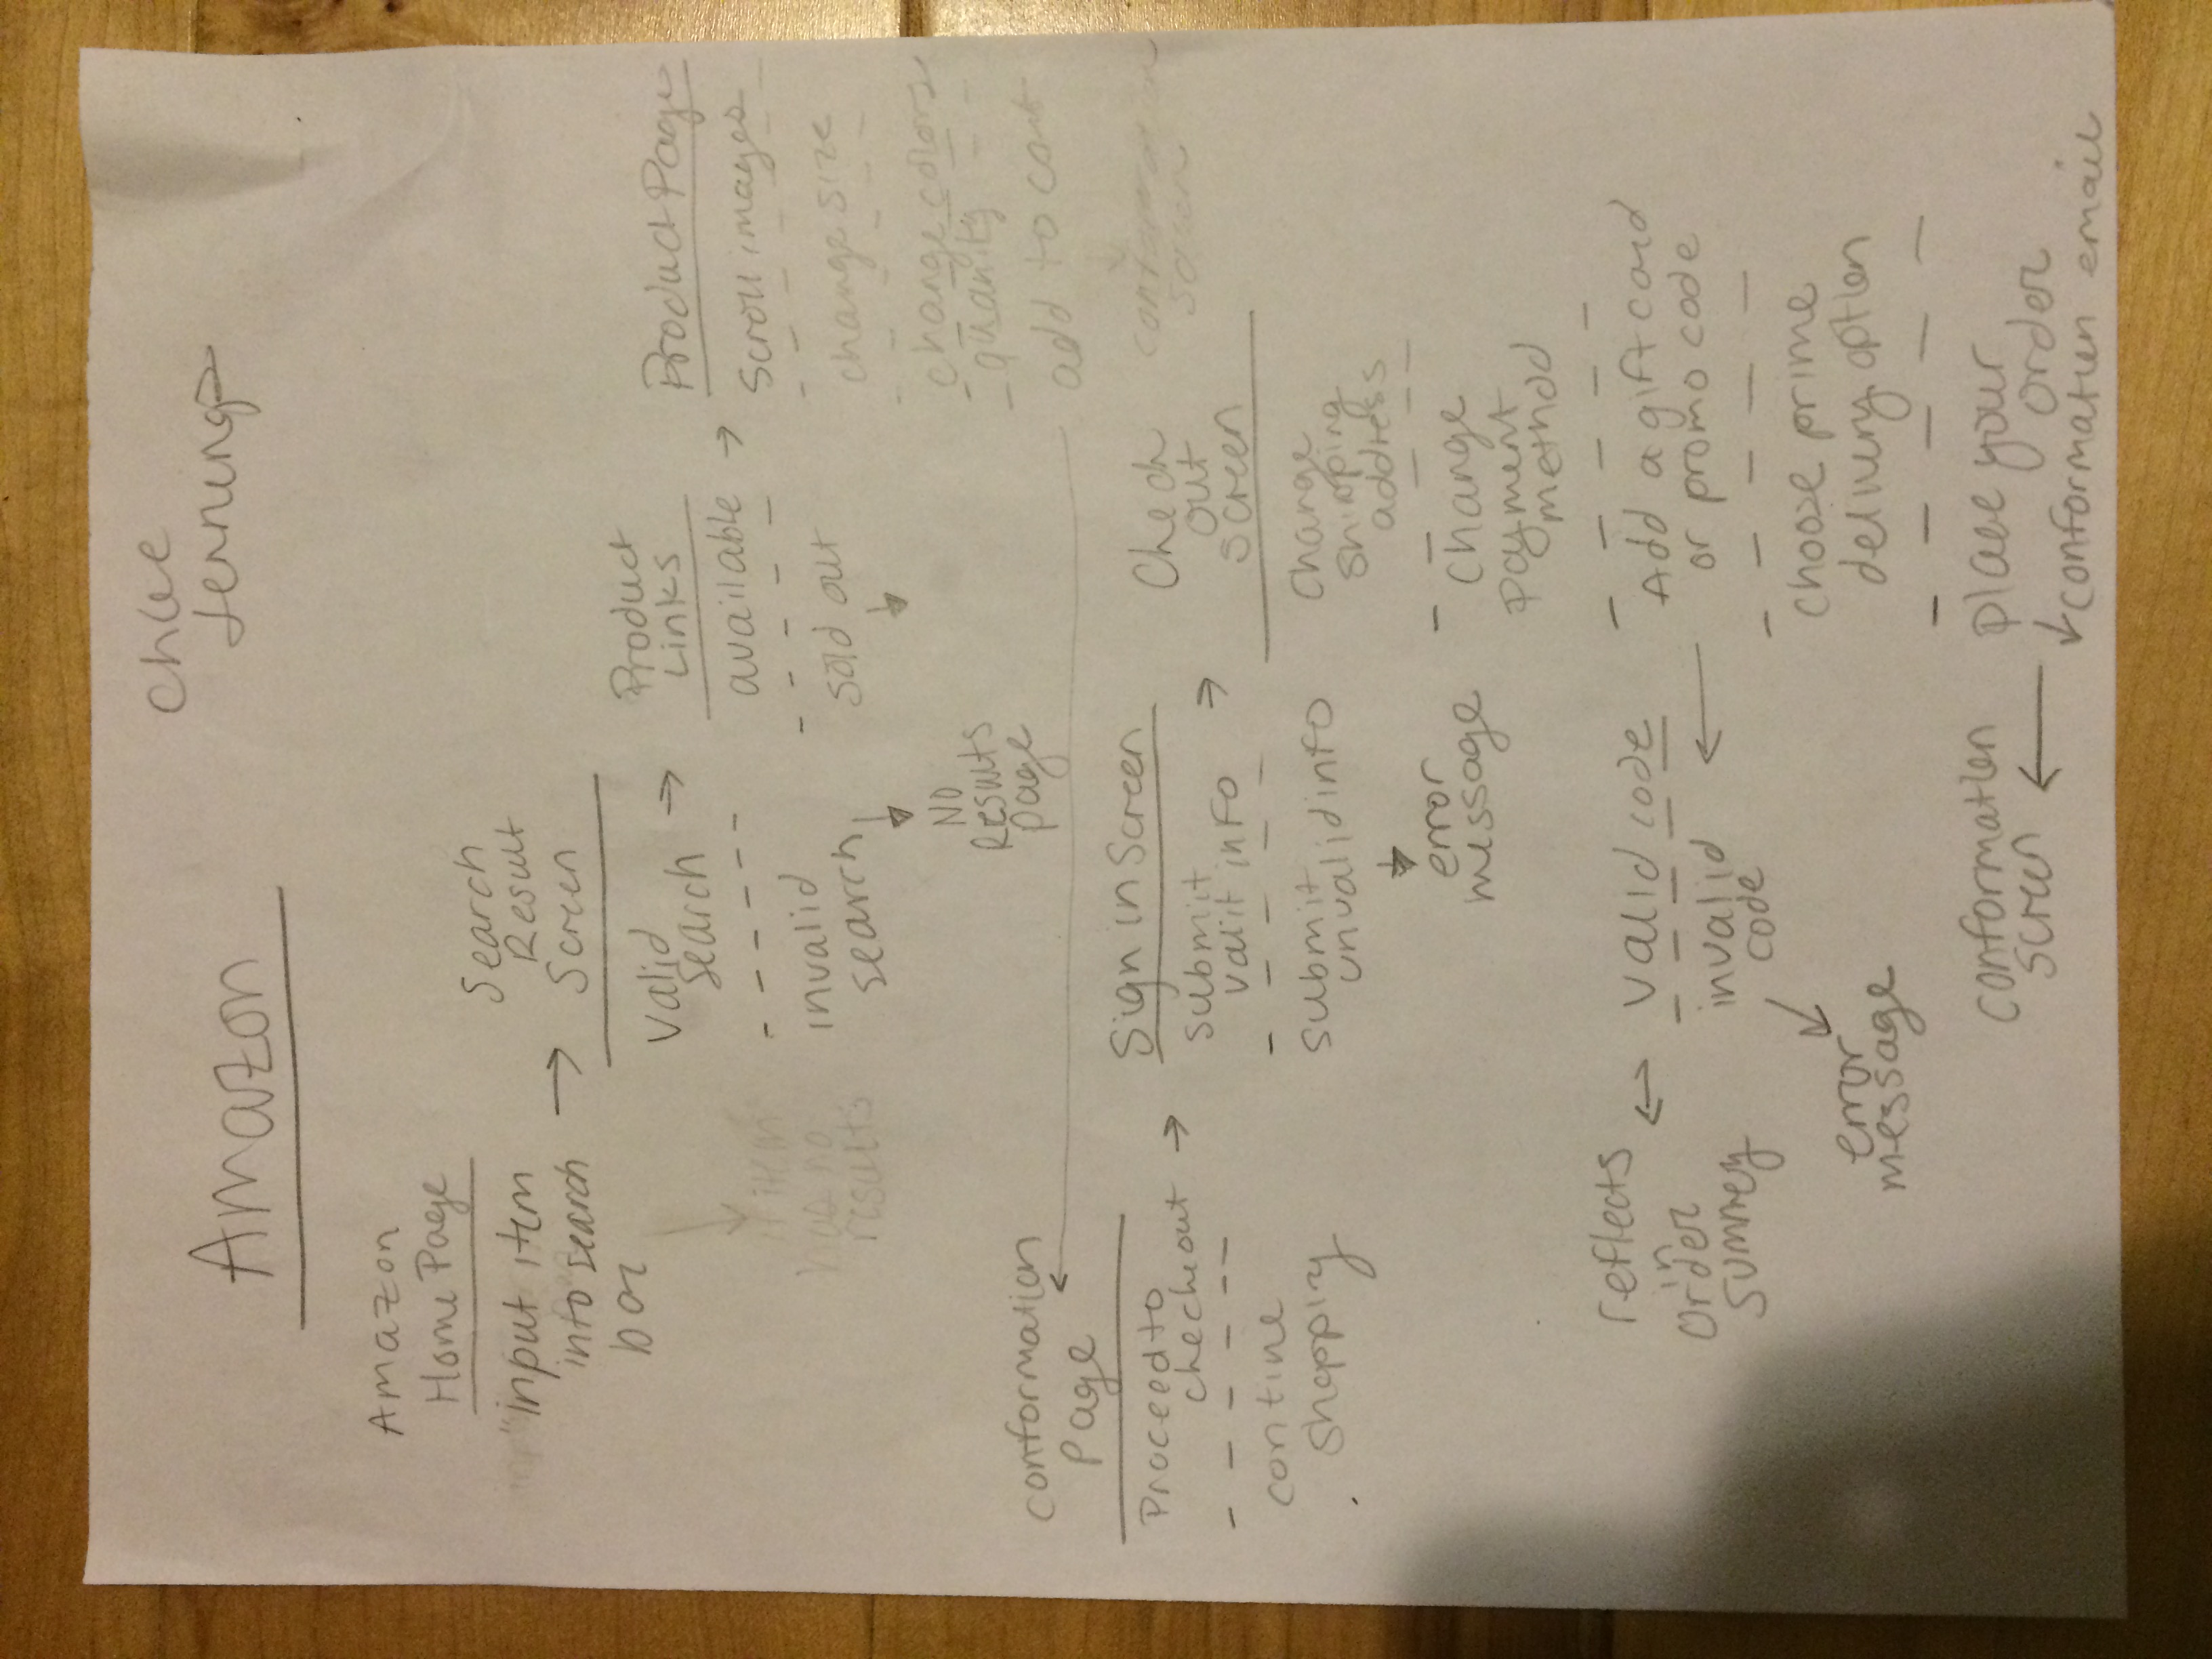 Chloe
Jennings
Amazon
Amazon
Home Page
"input item
into search
bar
if item
has no
results
Search
Result
Screen
Valid
Search
invalid
search
No
Results
page
Product
Links
available
sold out
Product Page
Scroll images
change size
change colors
quanity
add to cart
conformation
screen
conformation
Page
Proceed to
checkout
contine
shopping
Sign in Screen
submit
valit info
submit
unvalid info
error
message
Check
out
screen
Change
shipping
address
Change
payment
method
Add a gift card
or promo code
valid code
invalid
code
reflects
in
order
summery
error
message
choose prime
delivery option
place your
order
conformation email
conformation
screen